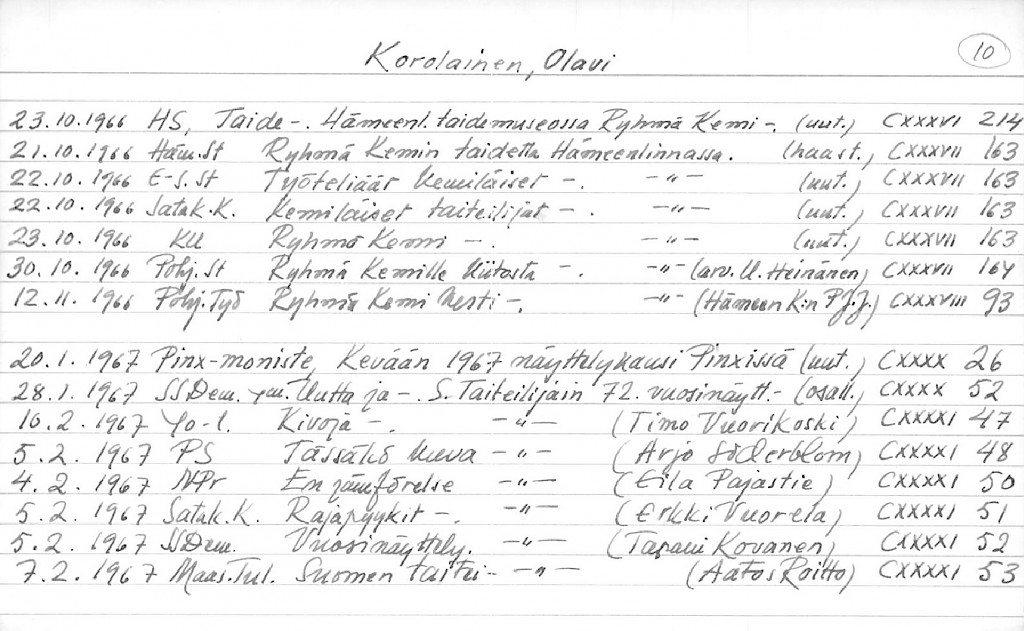 Korolainen, Olavi 10
23.10.1966 HS, Taide-. Hämeenl. taidemuseossa Ryhmä Kemi-. (uut.) CXXXVI 214
21.10.1966 Häm.St Ryhmä Kemin taidetta Hämeenlinnassa. (haast.) CXXXVII 163
22.10.1966 E-S.St Työteliäät kemiläiset -. -"- (uut.) CXXXVII 163
22.10.1966 Satak.K. Kemiläiset taiteilijat -. -"- (uut.) CXXXVII 163
23.10.1966 KU Ryhmä Kemi -. -"- (uut.) CXXXVII 163
30.10.1966 Pohj.St Ryhmä Kemille kiitosta -. -"- (arv. U. Heinänen) CXXXVII 164
12.11.1966 Pohj.Työ Ryhmä Kemi -. -"- (Hämeen K:n P.J.J.) CXXXVIII 93
20.1.1967 Pinx-moniste, Kevään 1967 näyttelykausi Pinxissä (uut.) CXXXX 26
28.1.1967 SSDem. ym. Uutta ja -. S. Taiteilijain 72. vuosinäytt.- (osall.) CXXXX 52
10.2.1967 Yo-l. Kivoja -. -"- (Timo Vuorikoski) CXXXXI 47
5.2.1967 PS Tässäkö kuva -"- (Arjo Söderblom) CXXXXI 48
4.2.1967 NPr En jämförelse -"- (Eila Pajastie) CXXXXI 50
5.2.1967 Satak.K. Rajapyykit -. -"- (Erkki Vuorela) CXXXXI 51
5.2.1967 SSDem. Vuosinäyttely. -"- (Tapani Kovanen) CXXXXI 52
7.2.1967 Maas.Tul. Suomen taitei- -"- (Aatos Roitto) CXXXXI 53